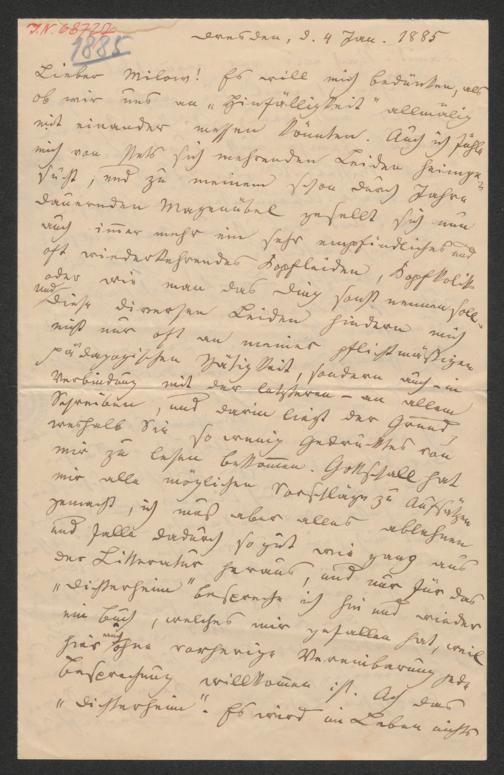 J.N. 68720
1885
Dresden, d. 4 Jan. 1885
Lieber Milow! Es will mich bedünken, als
ob wir uns an „Hinfälligkeit" allmälig
mit einander messen könnten. Auch ich fühle
mich von stets sich mehrenden Leiden heimge-
sucht, und zu meinem schon durch Jahre
dauernden Magenübel gesellt sich nun
auch immer mehr ein sehr empfindliches und
oft wiederkehrendes Kopfleiden, Kopfkolik
oder wie man das Ding sonst nennen soll
und diese diversen Leiden hindern mich
nicht nur oft an meiner pflichtmäßigen
pädagogischen Tätigkeit, sondern auch – in
Verbindung mit der letzteren – an allem
Schreiben, und darin liegt der Grund,
weshalb Sie so wenig Gedrucktes von
mir zu lesen bekommen. Gottschall hat
mir alle möglichen Vorschläge zu Aufsätzen
gemacht, ich muß aber alles ablehnen
und falle dadurch so gut wie ganz aus
der Litteratur heraus, und nur für das
„Dichterheim" bespreche ich hin und wieder
ein Buch, welches mir gefallen hat, weil
hier auch ohne vorherige Vereinbarung jede
Besprechung willkommen ist. Ach das
„Dichterheim". Es wird im Leben nichts